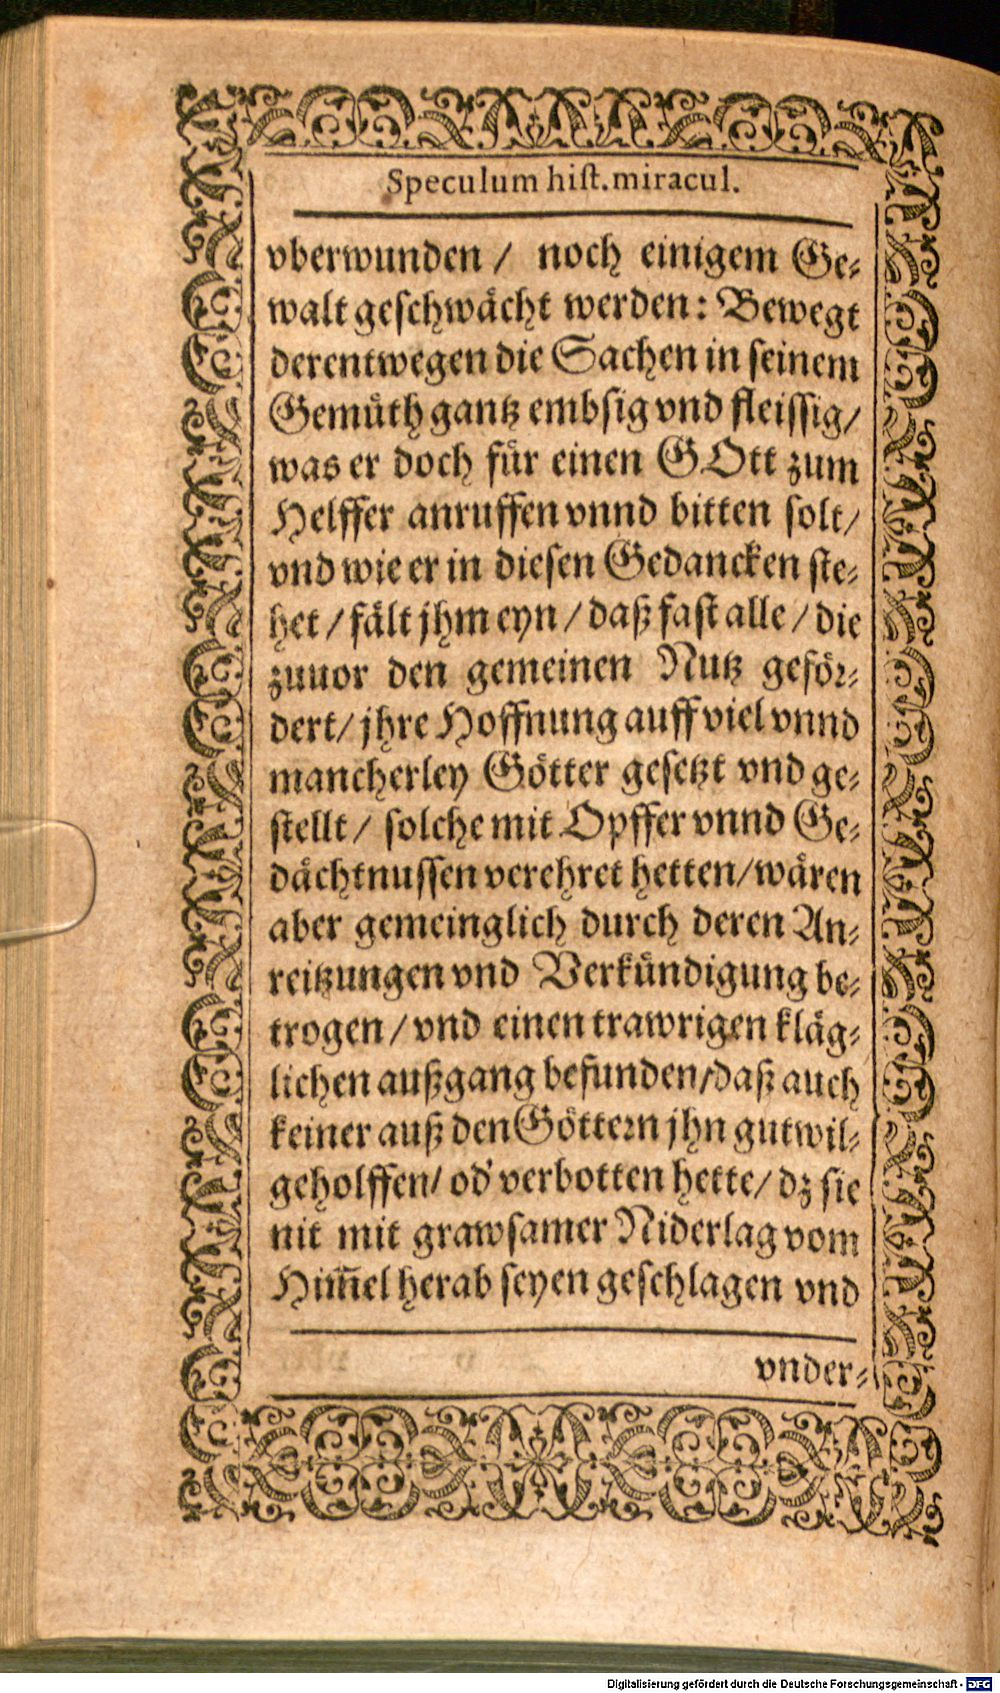 Speculum hiſt. miracul.
vberwunden / noch einigem Ge⸗
walt geſchwaͤcht werden: Bewegt
derentwegen die Sachen in ſeinem
Gemuͤth gantz embſig vnd fleiſſig/
was er doch fuͤr einen GOtt zum
Helffer anruffen vnnd bitten ſolt/
vnd wie er in dieſen Gedancken ſte⸗
het / faͤlt jhm eyn / daß faſt alle / die
zuuor den gemeinen Nutz gefoͤꝛ⸗
dert/ jhre Hoffnung auff viel vnnd
mancherley Goͤtter geſetzt vnd ge⸗
ſtellt / ſolche mit Opffer vnnd Ge⸗
daͤchtnuſſen verehret hetten/waͤren
aber gemeinglich durch deren An⸗
reitzungen vnd Verkuͤndigung be⸗
trogen / vnd einen trawrigen klaͤg⸗
lichen außgang befunden/daß auch
keiner auß den Goͤtteꝛn jhn gutwil⸗
geholffen/ od' verbotten hette/ dz ſie
nit mit grawſamer Niderlag vom
Him̃el herab ſeyen geſchlagen vnd
vnder⸗
Digitalisierung gefördert durch die Deutsche Forschungsgemeinschaft - DFG